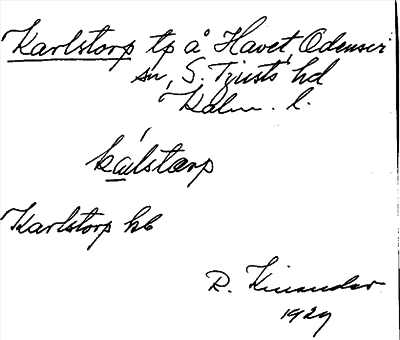 Karlstorp tp å Havet, Odensvi
sn, S. Tjusts hd
Kalm. l.
kálstorp
Karlstorp hb
R. Kinander
1929